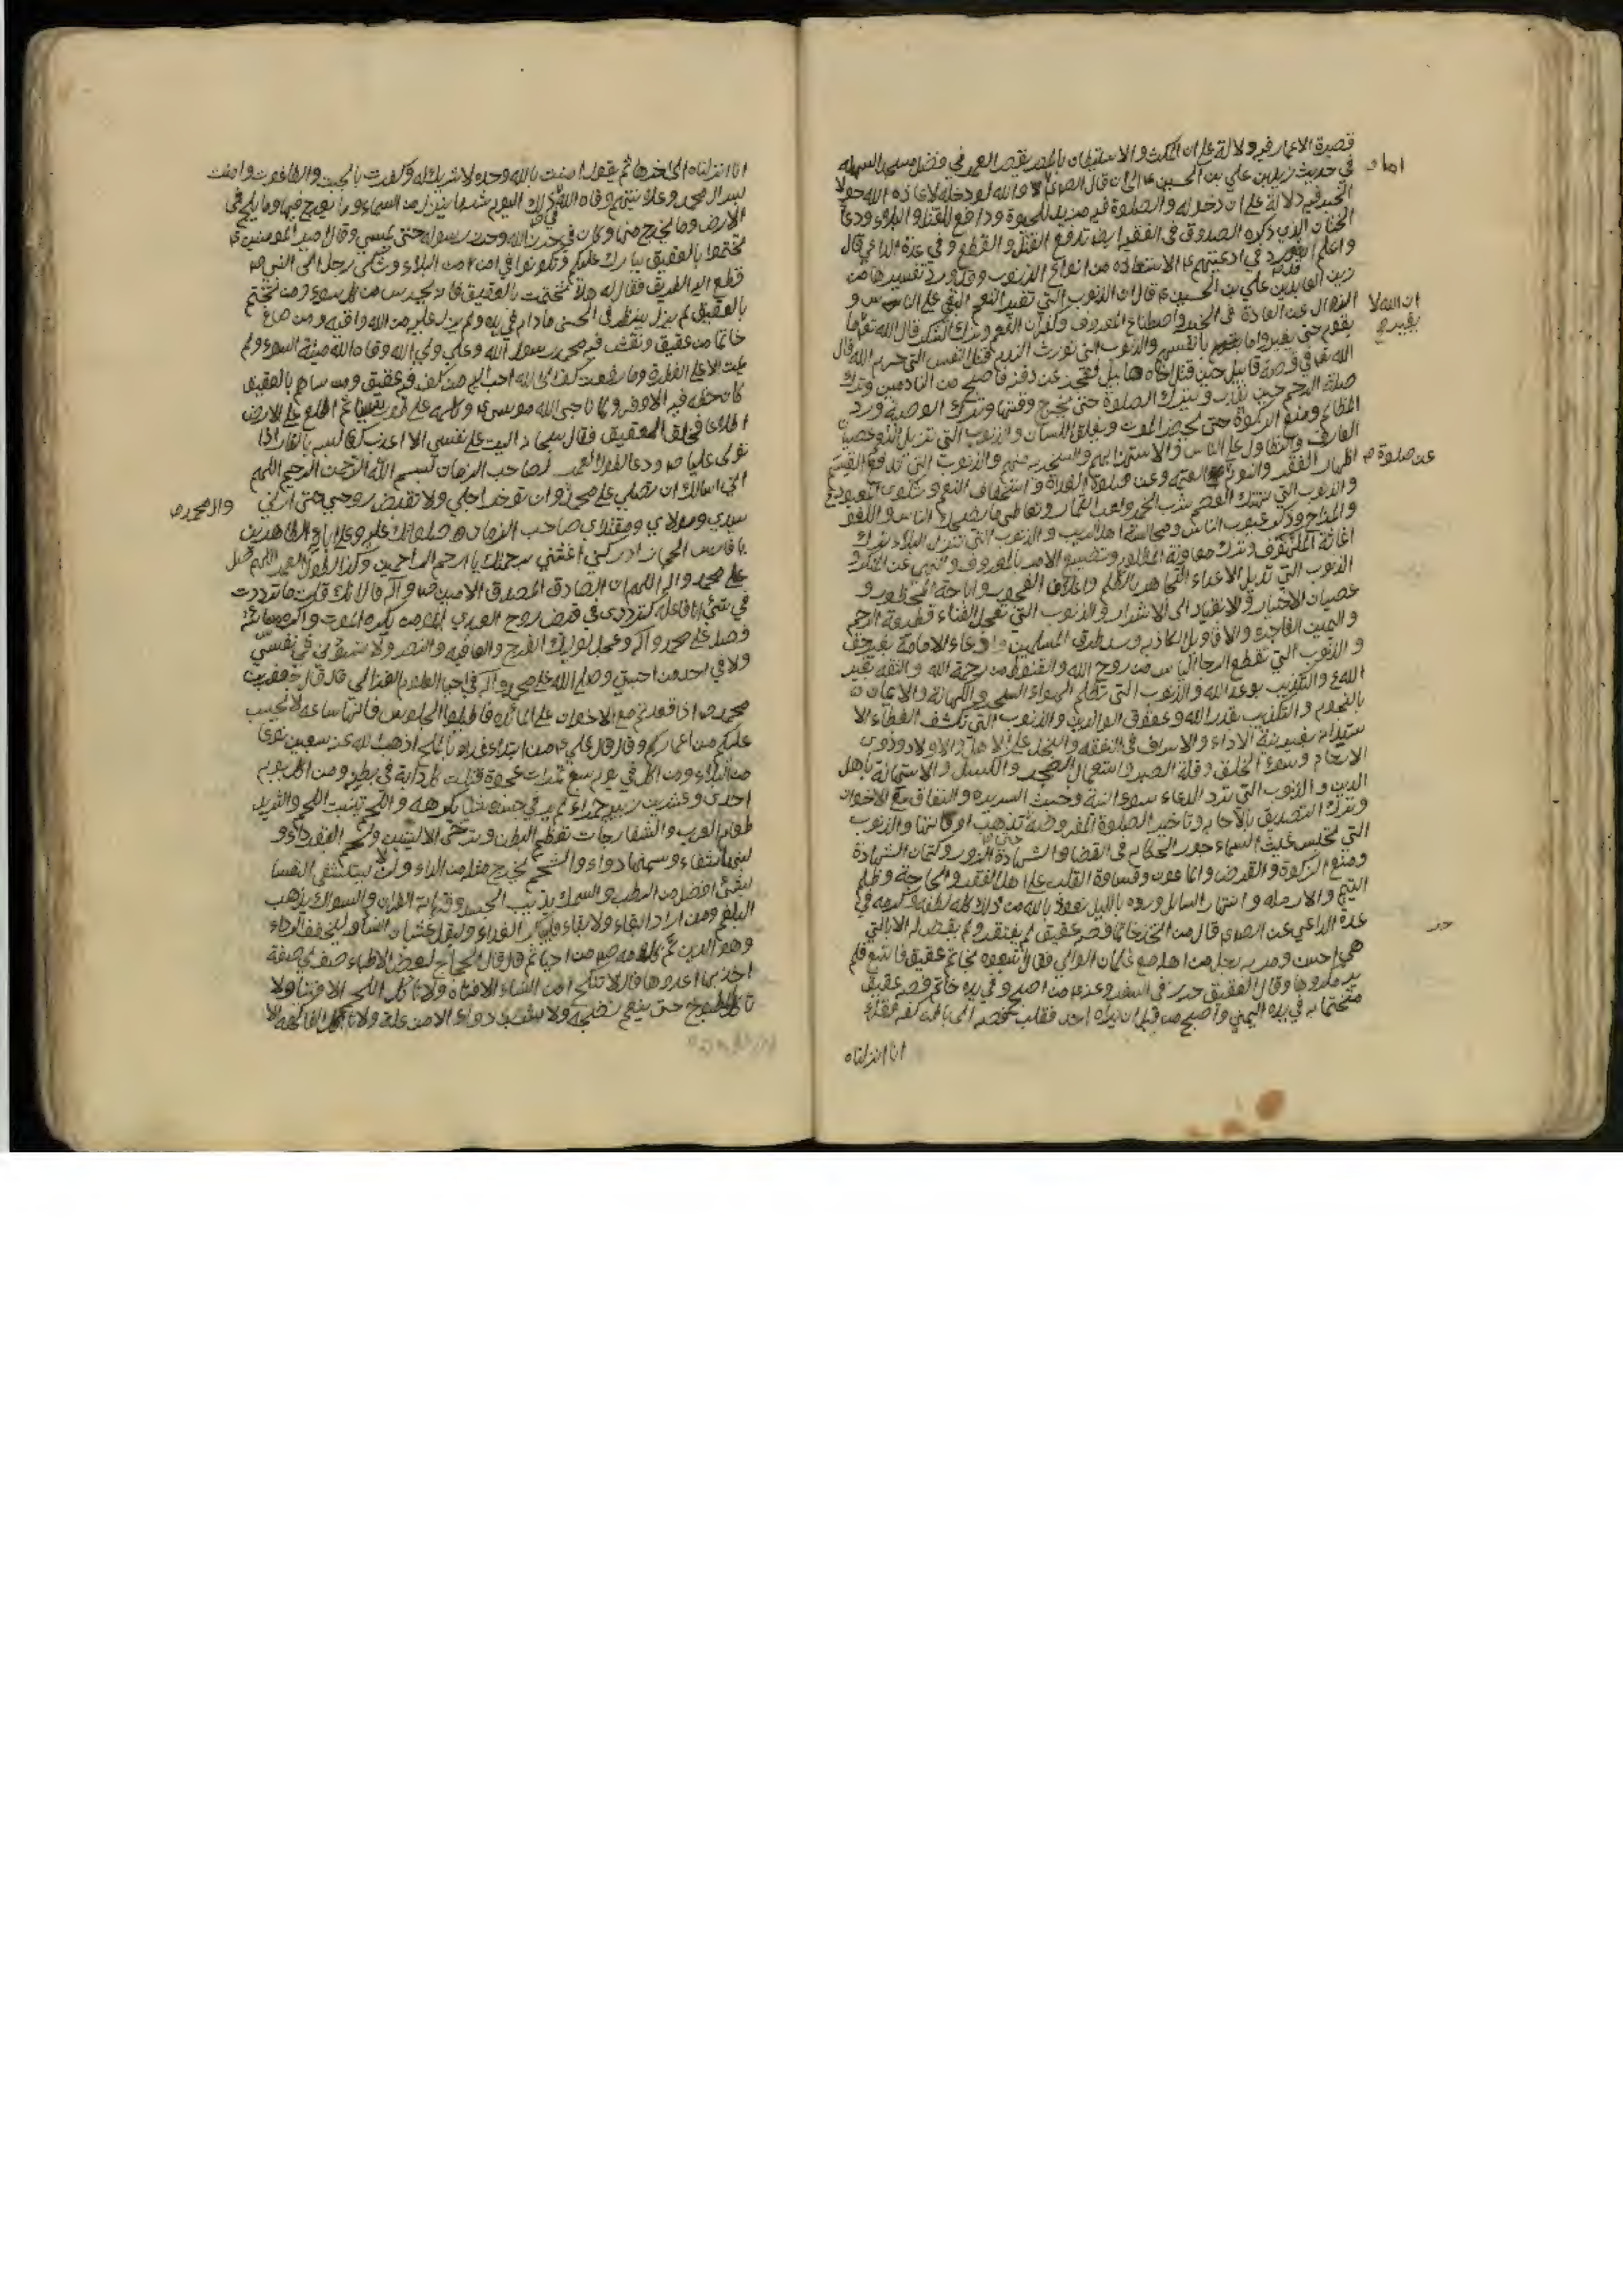 قصيرة الاعمار فيه دلالة على ان المكث والاستيطان بالمصر يقصر العمر وفي فضل مسجد السهلة
في حديث زيد بن علي بن الحسين ع الى ان قال الصادق اما والله لو دخله لاعاذه الله حولا
الخبر فيه دلالة على ان دخوله والصلوة فيه مزيد للحيوة ودافع للقتل والبلاء ودعاء
الذي ذكره الصدوق في الفقيه ايضا تدفع القتل والقطع وفي عدة الداعي قال
واعلم انه ورد في ادعيتهم ع الاستعاذة من انواع الذنوب وقد ورد تفسيرها عن
زين العابدين علي بن الحسين ع قال ان الذنوب التي تغير النعم البغي على الناس و
الزوال عن العادة في الخير واصطناع المعروف وكفران النعم وترك الشكر قال الله تعالى
ان الله لا يغير ما
بقوم حتى يغيروا ما بانفسهم والذنوب التي تورث الندم قتل النفس التي حرم الله قال
الله تعالى في قصة قابيل حين قتل اخاه هابيل فعجز عن دفنه فاصبح من النادمين وترك
صلة الرحم حين يقدر وترك الصلوة حتى يخرج وقتها وترك الوصية ورد
المظالم ومنع الزكوة حتى يحضر الموت وينغلق اللسان والذنوب التي تزيل النعم عصيان
العارف والتطاول على الناس والاستهزاء بهم والسخرية منهم والذنوب التي تدفع القسم
اظهار الفقر والنوم عن صلوة العتمة وعن صلوة الغداة واستحقار النعم وشكوى المعبود
والذنوب التي تهتك العصم شرب الخمر ولعب القمار وتعاطي ما يضحك الناس واللغو
والمزاح وذكر عيوب الناس ومجالسة اهل الريب والذنوب التي تنزل البلاء ترك
اغاثة الملهوف وترك معاونة المظلوم وتضييع الامر بالمعروف والنهي عن المنكر و
الذنوب التي تديل الاعداء المجاهرة بالظلم واعلان الفجور واباحة المحظور و
عصيان الاخيار والانقياد الى الاشرار والذنوب التي تعجل الفناء قطيعة الرحم
واليمين الفاجرة والاقاويل الكاذبة وسد طرق المسلمين وادعاء الامامة بغير حق
والذنوب التي تقطع الرجاء الياس من روح الله والقنوط من رحمة الله والثقة بغير
الله والتكذيب بوعد الله والذنوب التي تظلم الهواء السحر والكهانة والايمان
بالنجوم والتكذيب بقدر الله وعقوق الوالدين والذنوب التي تكشف الغطاء الا
ستدانة بغير نية الاداء والاسراف في النفقة والبخل على الاهل والاولاد وذوي
الارحام وسوء الخلق وقلة الصبر واستعمال الضجر والكسل والاستهانة باهل
الدين والذنوب التي ترد الدعاء سوء النية وخبث السريرة والنفاق مع الاخوان
وترك التصديق بالاجابة وتاخير الصلوة المفروضة حتى تذهب اوقاتها والذنوب
التي تحبس غيث السماء جور الحكام في القضاء والشهادة الزور وكتمان الشهادة
ومنع الزكوة والقرض والماعون وقساوة القلب على اهل الفقر والحاجة وظلم
اليتيم والارملة وانتهار السائل ورده بالليل نعوذ بالله من ذلك كله بلطفه وكرمه في
عدة الداعي عن الصادق قال من اتخذ خاتما فصه عقيق لم يفتقر ولم يقض له الا بالتي
هي احسن ومر به رجل من اهله مع غلمان الوالي فقال اتبعوه بخاتم عقيق فاتبع فلم
ير مكروها وقال العقيق حرز في السفر وعنه ع من اصبح وفي يده خاتم فصه عقيق
متختما به في يده اليمنى واصبح من قبل ان يراه احد فقلب فصه الى باطن كفه فقرأ
انا انزلناه
انا انزلناه الى اخرها ثم يقول امنت بالله وحده لا شريك له وكفرت بالجبت والطاغوت وامنت
بسر ال محمد وعلانيتهم وقاه الله ذلك اليوم شر ما ينزل من السماء وما يعرج فيها وما يلج في
الارض وما يخرج منها وكان في حرز الله وحرز رسوله حتى يمسي وقال امير المومنين ع
تختموا بالعقيق يبارك عليكم وتكونوا في امن من البلاء وشكى رجل الى النبي ص
قطع الطريق فقال له هلا تختمت بالعقيق فانه يحرس من كل سوء ومن تختم
بالعقيق لم يزل ينظر في الحسنى ما دام في يده ولم يزل عليه من الله واقية ومن صاغ
خاتما من عقيق ونقش فيه محمد رسول الله وعلي ولي الله وقاه الله ميتة السوء ولم
يمت الا على الفطرة وما رفعت كف الى الله احب اليه من كف فيه عقيق ومن ساهم بالعقيق
كان حظه فيه الاوفر ولما ناجى الله موسى ع وكلمه على طور سينا ثم اطلع على الارض
اطلاعة فخلق العقيق فقال سبحانه اليت على نفسي الا اعذب كف لابسه بالنار اذا
تولى عليا ص ودعاء لطول العمر لصاحب الزمان بسم الله الرحمن الرحيم اللهم
اني اسالك ان تصلي على محمد وال محمد وان توخر اجلي ولا تقبض روحي حتى ارني
سيدي ومولاي ومقتداي صاحب الزمان صلواتك عليه وعلى ابائه الطاهرين
يا فارس الحجاز ادركني اغثني برحمتك يا ارحم الراحمين وكذا لطول العمر اللهم صل
على محمد واله اللهم ان الصادق المصدق الامين ص واله قال انك قلت ما ترددت
في شيء انا فاعله كترددي في قبض روح العبدي المومن يكره الموت واكره مسائته
فصل على محمد واله وعجل لوليك الفرج والعافية والنصر ولا تسوني في نفسي
ولا في احد من احبتي وصلى الله على محمد واله في احيا العلوم الغزالي قال قال جعفر بن
محمد ص اذا قعدتم مع الاخوان على المائدة فاطيلوا الجلوس فانها ساعة لا تحسب
عليكم من اعماركم وقال قال علي ع من ابتداء غداءه بالملح اذهب الله عنه سبعين نوعا
من البلاء ومن اكل في يوم سبع تمرات عجوة قتلت كل دابة في بطنه ومن اكل يوم
احدى وعشرين زبيبة حمراء لم ير في جسده شيئا يكرهه واللحم ينبت اللحم والثريد
طعام العرب والشفارجات تعظم البطن وترخي الاليتين ولحم البقر داء و
لبنها شفاء وسمنها دواء والشحم يخرج مثله من الداء ولن يستشفى النفساء
بشيء افضل من الرطب والسمك يذيب الجسد وقراءة القران والسواك يذهب
البلغم ومن اراد البقاء ولا بقاء فليباكر الغداء وليقل غشيان النساء وليخفف الرداء
وهو الدين ثم كلامه ص من احيا ثم قال قال الحجاج لبعض الاطباء صف لي صفة
اخذ بها اعدوها قال لا تنكح من النساء الا فتاة ولا تاكل من اللحم الا فتيا ولا
تاكل المطبوخ حتى ينعم نضجه ولا تشرب دواء الا من علة ولا تاكل الفاكهة الا